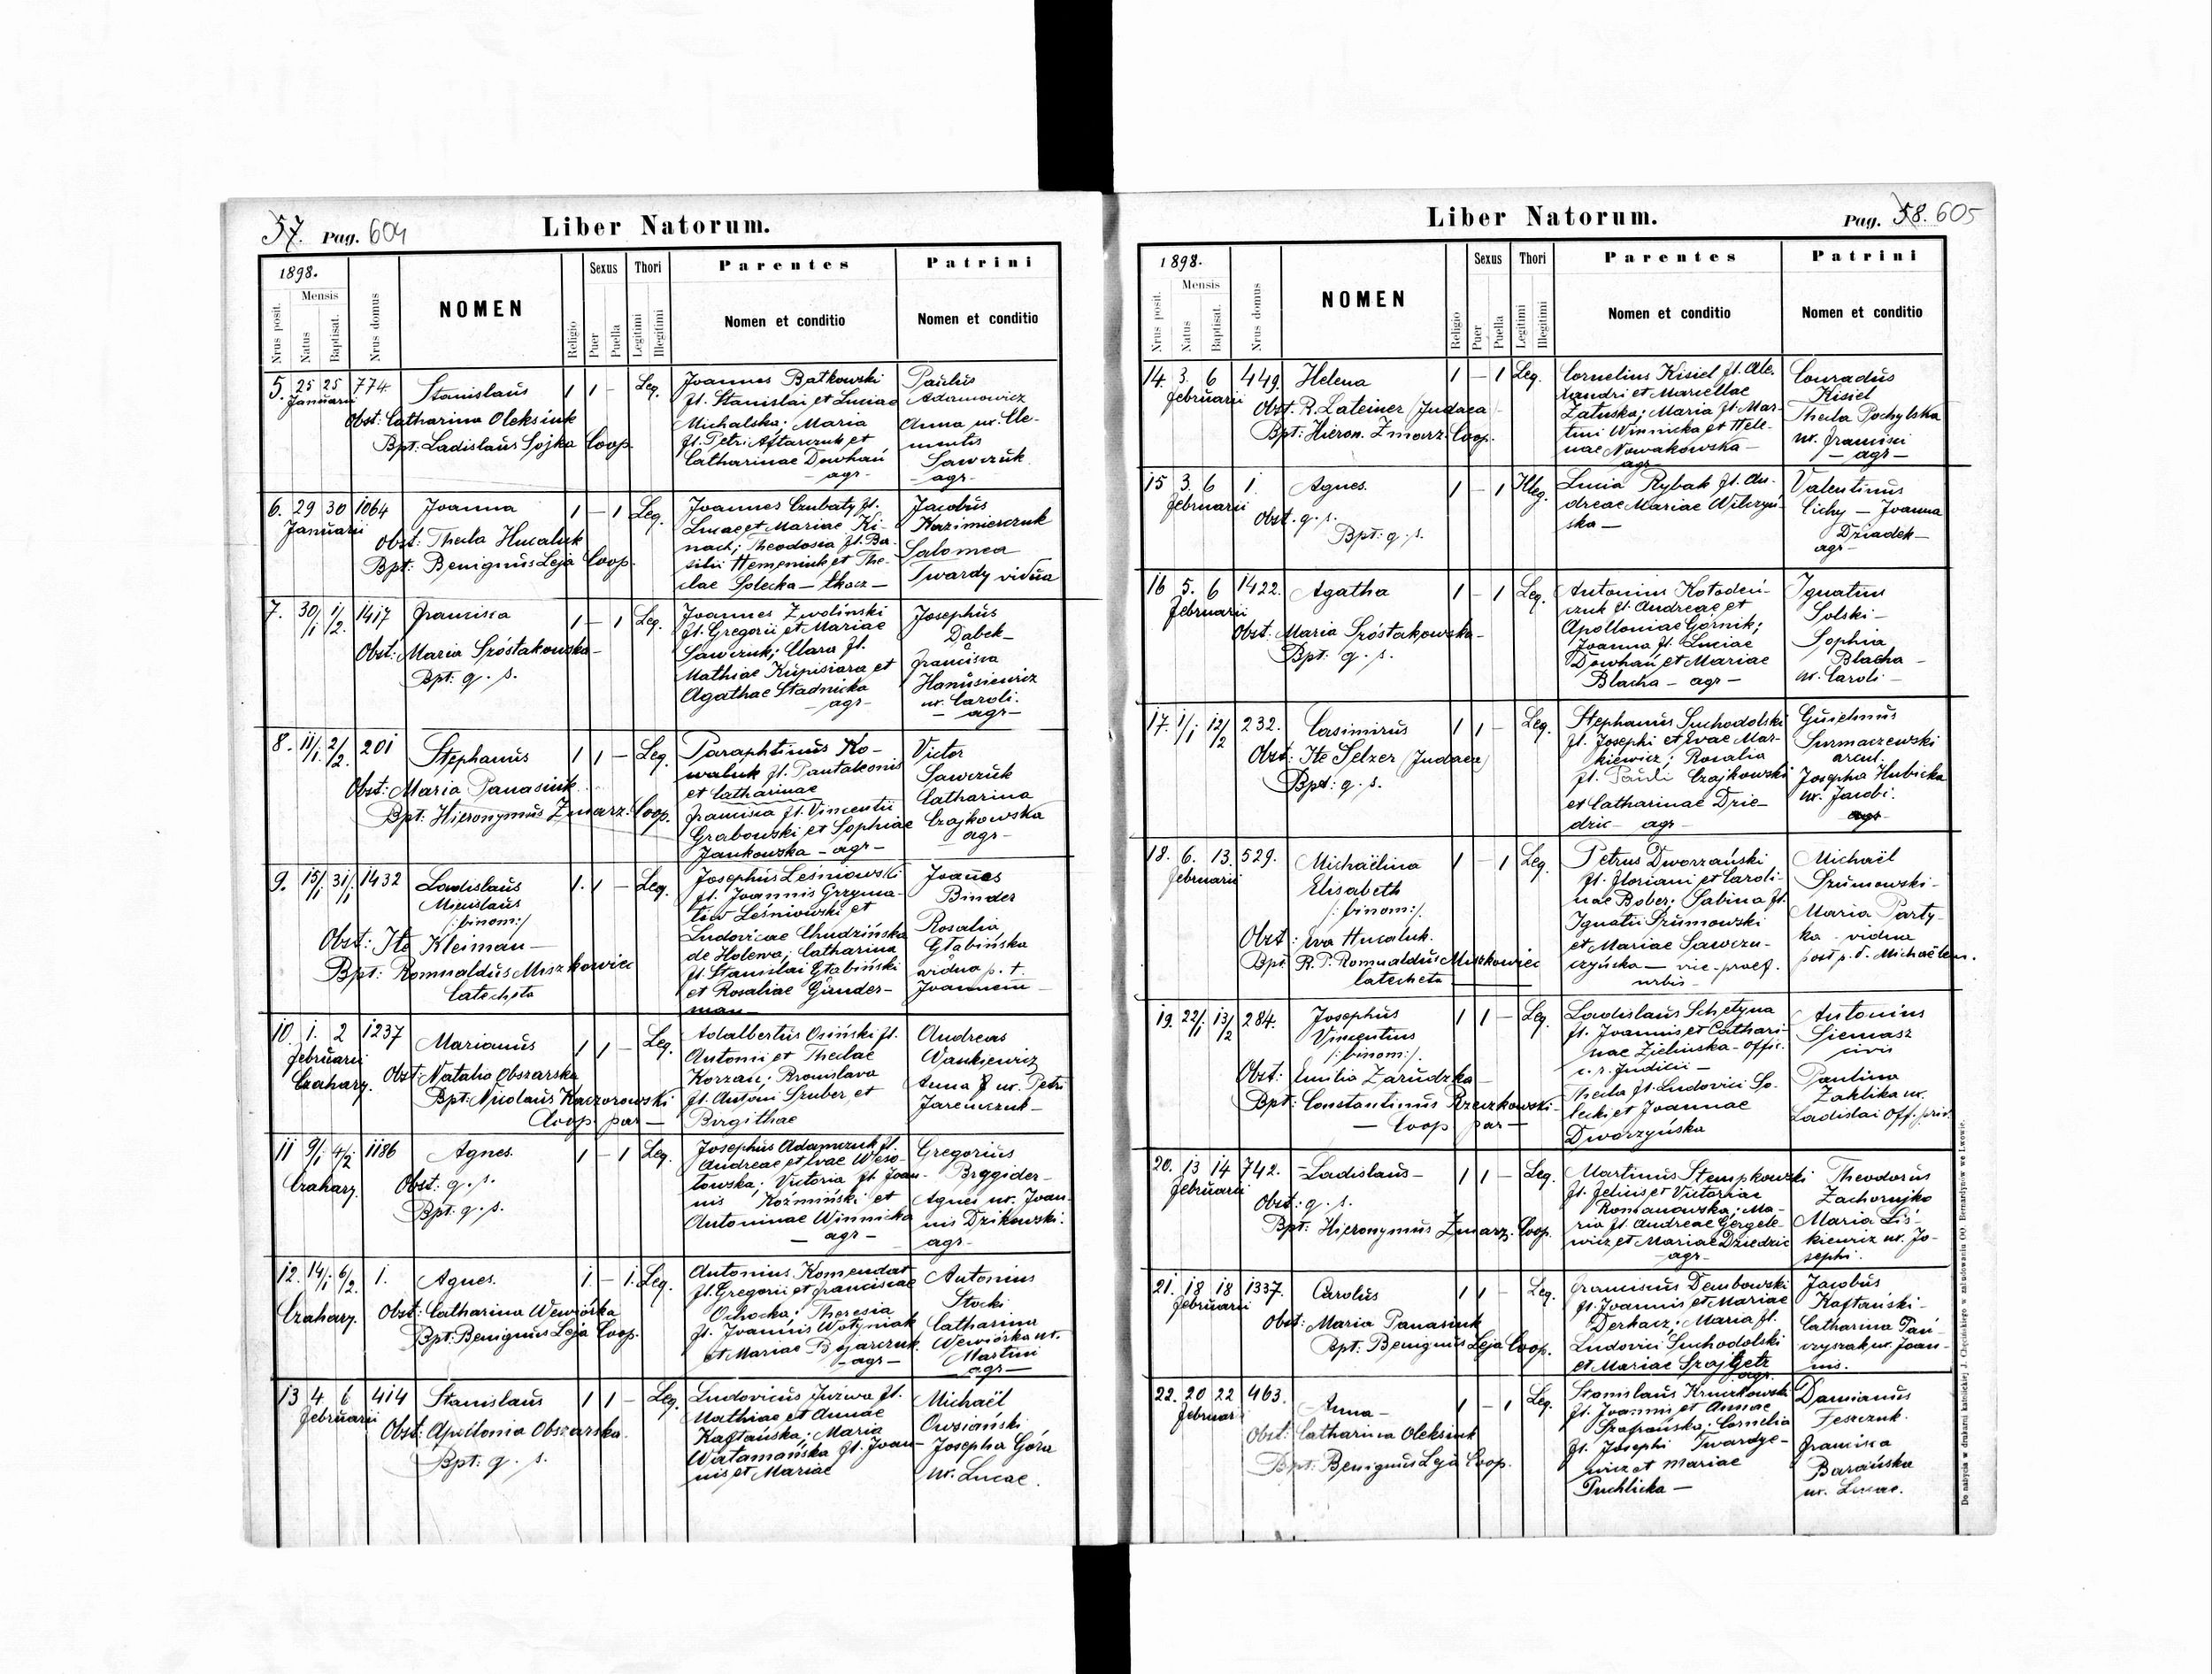 57. Pag. 604
Liber Natorum.
1898.
Nrus posit.
Mensis
Natus
Baptisat.
Nrus domus
NOMEN
Religio
Sexus
Puer
Puella
Thori
Legitimi
Illegitimi
Parentes
Nomen et conditio
Patrini
Nomen et conditio
5. 25 25 774 Stanislaus 1 1 – Leg.
Januarii
Obst: Catharina Oleksiuk
Bpt: Ladislaus Sojka Coop.
Joannes Batkowski
fl. Stanislai et Luciae
Michalska; Maria
fl. Petri Aftarczuk et
Catharinae Dowhań
– agr –
Paulus
Adamowicz
Anna ux. Cle-
mentis
Sawczuk
– agr –
6. 29 30 1064 Joanna 1 – 1 Leg.
Januarii
Obst: Thecla Hucaluk
Bpt: Benignus Leja Coop.
Joannes Czubaty fl.
Lucae et Mariae Ki-
nach; Theodosia fl. Ba-
silii Hemeniuk et The-
clae Solecka – tkacz –
Jacobus
Kazimierczuk
Salomea
Twardy vidua
7. 30/1 1/2. 1417 Francisca 1 – 1 Leg.
Obst: Maria Szóstakowska –
Bpt: q. s.
Joannes Zwolinski
fl. Gregorii et Mariae
Sawczuk; Clara fl.
Mathiae Kupisiara et
Agathae Stadnicka
– agr –
Josephus
Dąbek –
Francisca
Hanusiewicz
ux. Caroli.
– agr –
8. 11/1. 2/2. 201 Stephanus 1 1 – Leg.
Obst: Maria Panasiuk
Bpt: Hieronymus Zmarz. Coop.
Paraphtinus Ko-
waluk fl. Pantaleonis
et Catharinae
Francisca fl. Vincentii
Grabowski et Sophiae
Jankowska – agr –
Victor
Sawczuk
Catharina
Czajkowska
agr –
9. 15/1 31/1 1432 Ladislaus 1. 1 – Leg.
Mieislaus
/:binom:/
Obst: Ite Kleiman –
Bpt: Romualdus Miszkowiec
Catecheta
Josephus Leśniowski
fl. Joannis Grzyma-
tiw Leśniowski et
Ludovicae Chudzińska
de Holewa; Catharina
fl. Stanislai Głabiński
et Rosaliae Günder-
man –
Joanes
Binder
Rosalia
Głabińska
vidua p. t.
Joannem –
10. 1. 2 1237 Marianus 1 1 – Leg.
Februarii
Czahary. Obst: Natalia Obszarska
Bpt: Nicolaus Kaczorowski
Coop par –
Adalbertus Osiński fl.
Antonii et Theclae
Korzan; Bronislava
fl. Antoni Szuber et
Birgithae
Andreas
Wankiewicz
Anna ux. Petri
Jaremczuk –
11 9/1 4/2 1186 Agnes. 1 – 1 Leg.
Czahary. Obst: q. s.
Bpt: q. s.
Josephus Adamczuk fl.
Andreae et Evae Weso-
łowska; Victoria fl. Joan-
nis Koźmiński et
Antoninae Winnicka
– agr –
Gregorius
Brygider –
Agnes ux. Joan-
nis Dzikowski.
agr –
12. 14/1 6/2 1. Agnes. 1. – 1. Leg.
Czahary. Obst: Catharina Wewiórka
Bpt: Benignus Leja Coop.
Antonius Komendat
fl. Gregorii et Franciscae
Ochocka; Theresia
fl. Joannis Wołyniak
et Mariae Bojarczuk.
– agr –
Antonius
Stocki
Catharina
Wewiórka ux.
Martini
– agr –
13 4 6 414 Stanislaus 1 1 – Leg.
Februarii
Obst: Apollonia Obszarska.
Bpt: q. s.
Ludovicus Juzwa fl.
Mathiae et Annae
Kaftańska; Maria
Watamańska fl. Joan-
nis et Mariae
Michaël
Owsiański
Josepha Góra
ux. Lucae.
Liber Natorum.
Pag. 58. 605
1898.
Nrus posit.
Mensis
Natus
Baptisat.
Nrus domus
NOMEN
Religio
Sexus
Puer
Puella
Thori
Legitimi
Illegitimi
Parentes
Nomen et conditio
Patrini
Nomen et conditio
14 3. 6 449. Helena 1 – 1 Leg.
Februarii
Obst: R. Lateiner /Judaea/
Bpt: Hieron. Zmarz. Coop.
Cornelius Kisiel fl. Ale-
xandri et Marcellae
Załuska; Maria fl. Mar-
tini Winnicka et Hele-
nae Nowakowska –
agr –
Conradus
Kisiel
Thecla Pochylska
ux. Francisci
– agr –
15 3. 6 1. Agnes. 1 – 1 Illeg.
Februarii
Obst. q. s.
Bpt: q. s.
Lucia Rybak fl. An-
dreae Mariae Wilczyń-
ska –
Valentinus
Cichy – Joanna
Dziadek –
agr –
16 5. 6 1422. Agatha 1 – 1 Leg.
Februarii
Obst: Maria Szóstakowska –
Bpt: q. s.
Antonius Kołodeń-
czuk fl. Andreae et
Apolloniae Górnik;
Joanna fl. Luciae
Dowhań et Mariae
Blacha – agr –
Ignatius
Solski –
Sophia
Blacha –
ux. Caroli –
17. 1/1 12/2 232. Casimirus 1 1 – Leg.
Obst: Ite Selzer /Judaea/
Bpt: q. s.
Stephanus Suchodolski
fl. Josephi et Evae Mar-
kiewicz; Rosalia
fl. Pauli Czajkowski
et Catharinae Dzie-
dzic – agr –
Guielmus
Surmaczewski
arcul.
Josepha Hubicka
ux. Jacobi.
agr
18. 6. 13. 529. Michaëlina 1 – 1 Leg.
Februarii
Elisabeth
/:binom:/.
Obst: Eva Hucaluk.
Bpt: R. P. Romualdus Miszkowiec
Catecheta
Petrus Dworzański
fl. Floriani et Caroli-
nae Bober; Sabina fl.
Ignatii Szumowski
et Mariae Sawczu-
czyńska – vice-praef.
urbis –
Michaël
Szumowski –
Maria Party-
ka – vidua
post p. d. Michaëlem.
19. 22/1 13/2 284. Josephus 1 1 – Leg.
Vincentius
/:binom:/.
Obst: Emilia Zarudzka –
Bpt: Constantinus Rzeczkowski –
– Coop par –
Ladislaus Schetyna
fl. Joannis et Cathari-
nae Zielinska – offic.
c. r. Judicii –
Thecla fl. Ludovici So-
lecki et Joannae
Dworzyńska
Antonius
Siemasz
civis
Paulina
Zahlika ux.
Ladislai Off. priv.
20. 13 14 742. – Ladislaus – 1 1 – Leg.
Februarii
Obst: q. s.
Bpt: Hieronymus Zmarz. Coop.
Martinus Stempkowski
fl. Felicis et Victoriae
Romanowska; Ma-
ria fl. Andreae Gergele-
wicz et Mariae Dziedzic
– agr –
Theodorus
Zachornjko
Maria Liś-
kiewicz ux. Jo-
sephi.
21. 18 18 1337. Carolus 1 1 – Leg.
Februarii
Obst: Maria Panasiuk
Bpt: Benignus Leja Coop.
Franciscus Dembowski
fl. Joannis et Mariae
Derkacz; Maria fl.
Ludovici Suchodolski
et Mariae Szajgetz
agr.
Jacobus
Kaftański –
Catharina Pań-
czyszak ux. Joan-
nis.
22. 20 22 463. – Anna – 1 – 1 Leg.
Februar
Obst: Catharina Oleksiuk
Bpt: Benignus Leja Coop.
Stanislaus Kruczkowski
fl. Joannis et Annae
Szafrańska; Cornelia
fl. Josephi Twardye-
wicz et Mariae
Puchlicka –
Damianus
Feszczuk.
Francisca
Barańska
ux. Lucae.
Do nabycia w drukarni katolickiej J. Chęcińskiego w zabudowaniu OO. Bernardynów we Lwowie.